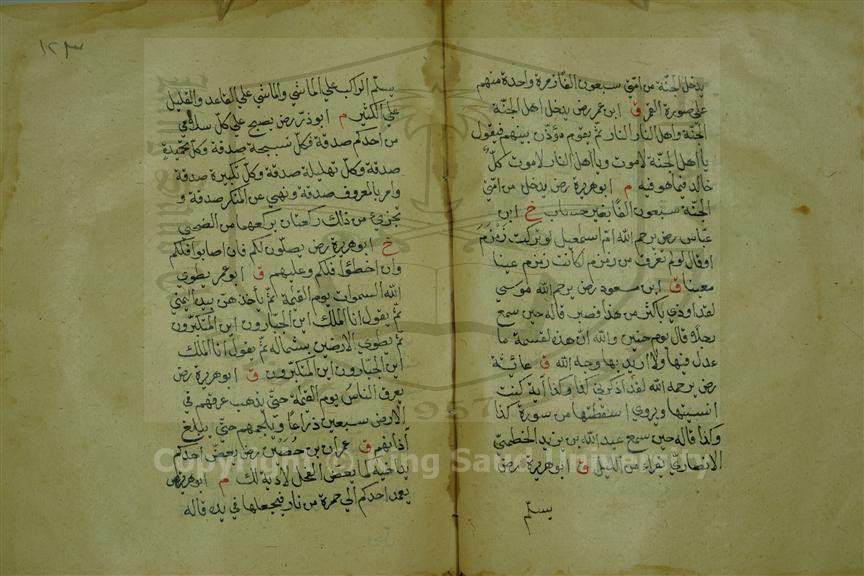 يدخل الجنة من امتي سبعون الفا زمرة واحدة منهم
على صورة القمر ق ابن عمر رض يدخل اهل الجنة
الجنة واهل النار النار ثم يقوم مؤذن بينهم فيقول
يا اهل الجنة لاموت ويا اهل النار لاموت كل
خالد فيما هو فيه م ابو هريرة رض يدخل من امتي
الجنة سبعون الفا بغير حساب خ ابن
عباس رض يرحم الله ام اسمعيل لو تركت زمزم
او قال لو لم تغرف من زمزم لكانت زمزم عينا
معينا ق ابن مسعود رض يرحم الله موسى
لقد اوذي باكثر من هذا فصبر قاله حين سمع
رجلا قال يوم حنين والله ان هذه لقسمة ما
عدل فيها ولا اريد بها وجه الله ق عائشة
رض يرحمه الله لقد اذكرني كذا وكذا آية كنت
انسيتها ويروى اسقطتها من سورة كذا
وكذا قاله حين سمع عبد الله بن يزيد الخطمي
الانصاري يقراء من الليل ق ابو هريرة رض
يسلم
١٢٣
يسلم الراكب على الماشي والماشي على القاعد والقليل
على الكثير م ابو ذر رض يصبح على كل سلامى
من احدكم صدقة فكل تسبيحة صدقة وكل تحميدة
صدقة وكل تهليلة صدقة وكل تكبيرة صدقة
وامر بالمعروف صدقة ونهي عن المنكر صدقة و
يجزئ من ذلك ركعتان يركعهما من الضحى
خ ابو هريرة رض يصلون لكم فان اصابوا فلكم
وان اخطؤا فلكم وعليهم ق ابو عمر يطوي
الله السموات يوم القيمة ثم ياخذهن بيده اليمنى
ثم يقول انا الملك اين الجبارون اين المتكبرون
ثم يطوي الارضين بشماله ثم يقول انا الملك
اين الجبارون اين المتكبرون ق ابو هريرة رض
يعرق الناس يوم القيمة حتى يذهب عرقهم في
الارض سبعين ذراعا ويلجمهم حتى يبلغ
آذانهم ق عمران بن حصين رض يعض احدكم
يد اخيه كما يعض الفحل لا دية لك م ابو هريرة رض
يعمد احدكم الى جمرة من نار فيجعلها في يده قاله
Copyright © King Saud University
1957